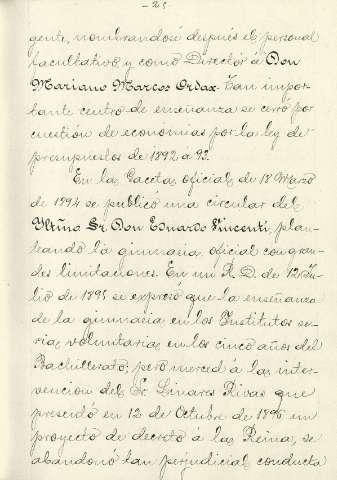 - 25 -
gente, nombrandosé después el personal
facultativo y como Director á Don
Mariano Marcos Ordax. Tan impor-
tante centro de enseñanza se cerró por
cuestión de economias por la ley de
presupuestos de 1892 á 93.
En la Gaceta oficial de 18 Marzo
de 1894 se publicó una circular del
Yltmo Sr. Don Eduardo Vincenti, plan-
teando la gimnasia oficial con gran-
des limitaciones. En un R. D. de 12 Ju-
lio de 1895 se expresó que la enseñanza
de la gimnasia en los Institutos se-
ria voluntaria en los cinco años del
Bachillerato; pero merced á la inter-
vencion del Sr. Linares Rivas que
presentó en 12 de Octubre de 1896 un
proyecto de decreto á la Reina, se
abandonó tan perjudicial conducta